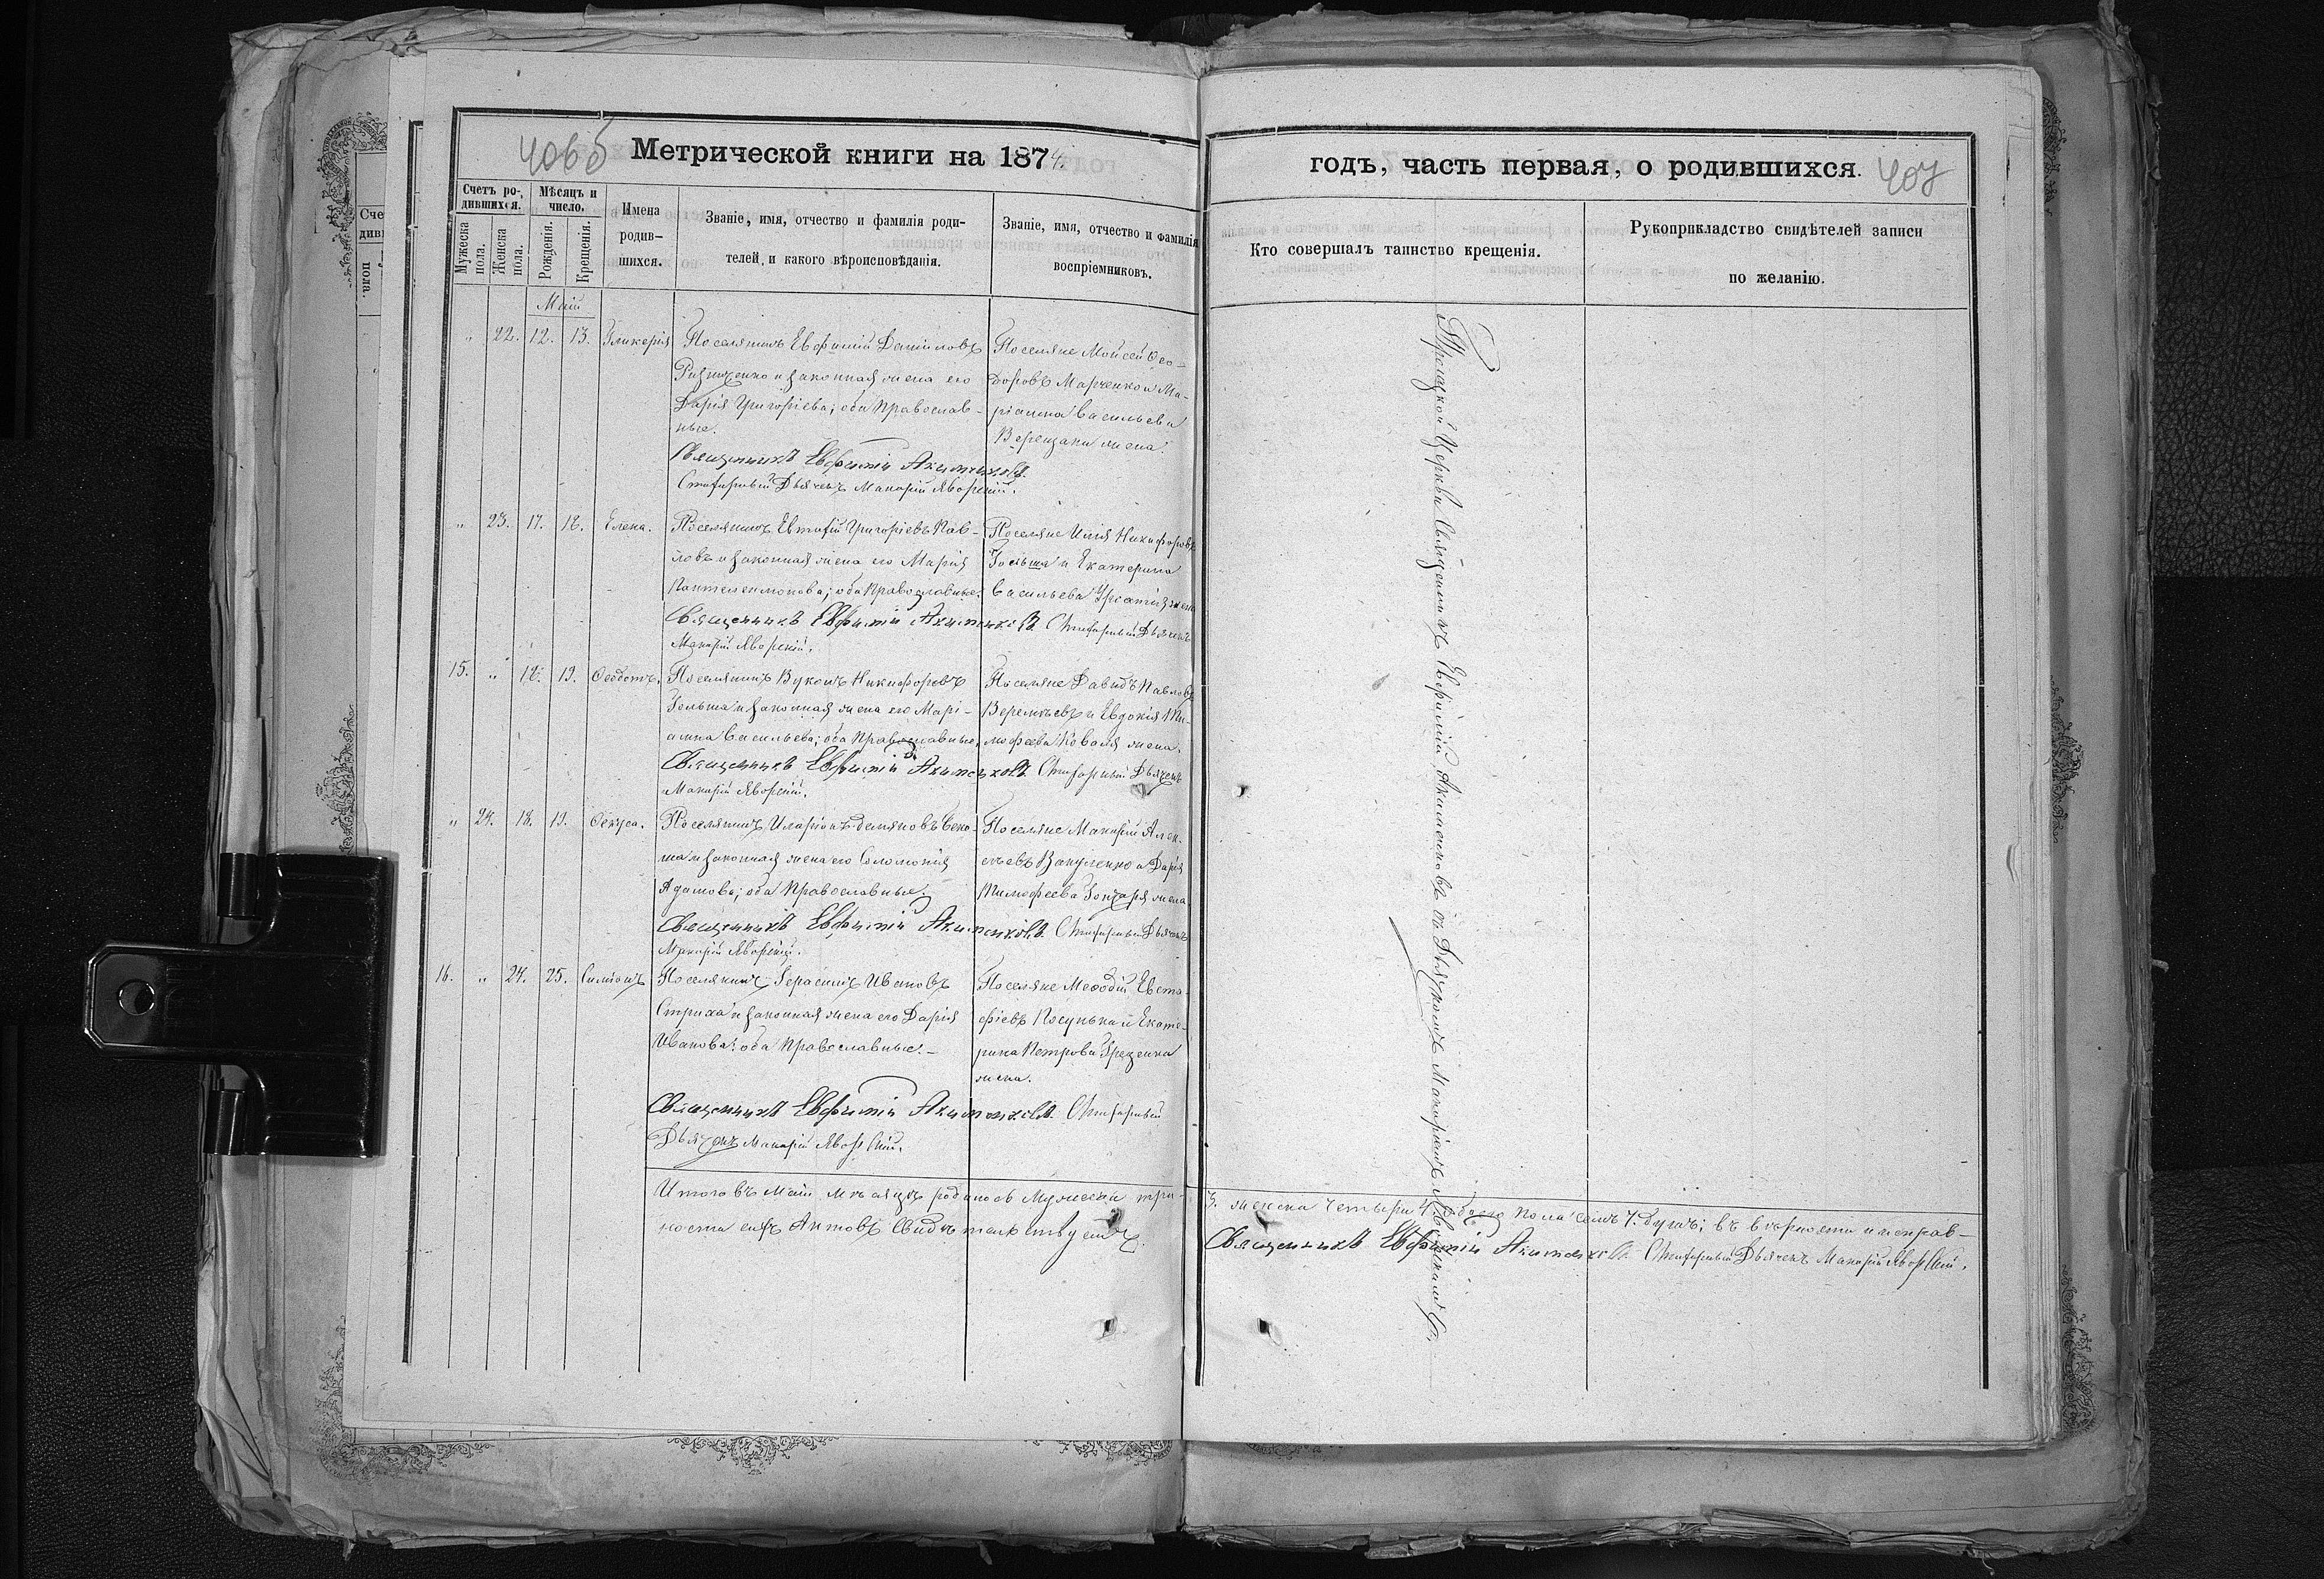 406б
Метрической книги на 1874.
Счетъ ро-
дившихся.
Мѣсяцъ и
число.
Мужеска
пола.
Женска
пола.
Рожденія.
Крещенія.
Имена
родив-
шихся.
Званіе, имя, отчество и фамилія роди-
телей, и какого вѣроисповѣданія.
Званіе, имя, отчество и фамилія
воспріемниковъ.
Маій
„ 22. 12. 13. Гликерія
Поселянинъ Евфимій Даниловъ
и законная жена его
Дарія Григоріева; оба Православ-
ные.
Поселяне Мойсей Ѳео-
доровъ Марченко и Ма-
ріанна Васильева
Верещаки жена.
Священникъ Евфимій Акименковъ.
Стихарный Дьячекъ Макарій Яворскій.
„ 23. 17. 18. Елена.
Поселянинъ Евтихій Григоріевъ Пав-
ловъ и законная жена его Марія
Пантелеимонова; оба Православные.
Поселяне Илія Никифоровъ
и Екатерина
Васильева жена
Священникъ Евфимій Акименковъ Стихарный Дьячекъ
Макарій Яворскій.
15. „ 18. 19. Ѳеодотъ.
Поселянинъ Никифоровъ
и законная жена его Марі-
анна Васильева; оба Православные.
Поселяне Давидъ Павловъ
Веремѣевъ и Евдокія Ти-
мофеева Коваля жена.
Священникъ Евфимій Акименковъ Стихарный Дьячекъ
Макарій Яворскій.
„ 24. 18. 19.
Поселянинъ Иларіонъ
и законная жена его Соломонія
Адамова; оба Православные.
Поселяне Макарій Алек-
сѣевъ Вакуленко и Дарія
Тимофеева Гончаря жена
Священникъ Евфимій Акименковъ. Стихарный Дьячекъ
Макарій Яворскій.
16. „ 24. 25. Симеонъ
Поселянинъ Герасимъ Ивановъ
Стриха и законная жена его Дарія
Иванова; оба Православные.—
Поселяне Меѳодій Евста-
фіевъ и Екате-
рина Петрова
жена.
Священникъ Евфимій Акименковъ. Стихарный
Дьячекъ Макарій Яворскій.
Итого въ Маіи мѣсяцѣ родилось Мужеска три
ности сихъ Актовъ Свидѣтельствуемъ
годъ, часть первая, о родившихся. 407
Кто совершалъ таинство крещенія.
Рукоприкладство свидѣтелей записи
по желанію.
Церкви Священникъ Евфимій Акименковъ съ Дьячкомъ Макаріемъ Яворскимъ.
3. женска четыри 4. обоего пола семъ 7. душъ; въ вѣрности и исправ-
Священникъ Евфимій Акименковъ. Стихарный Дьячекъ Макарій Яворскій.